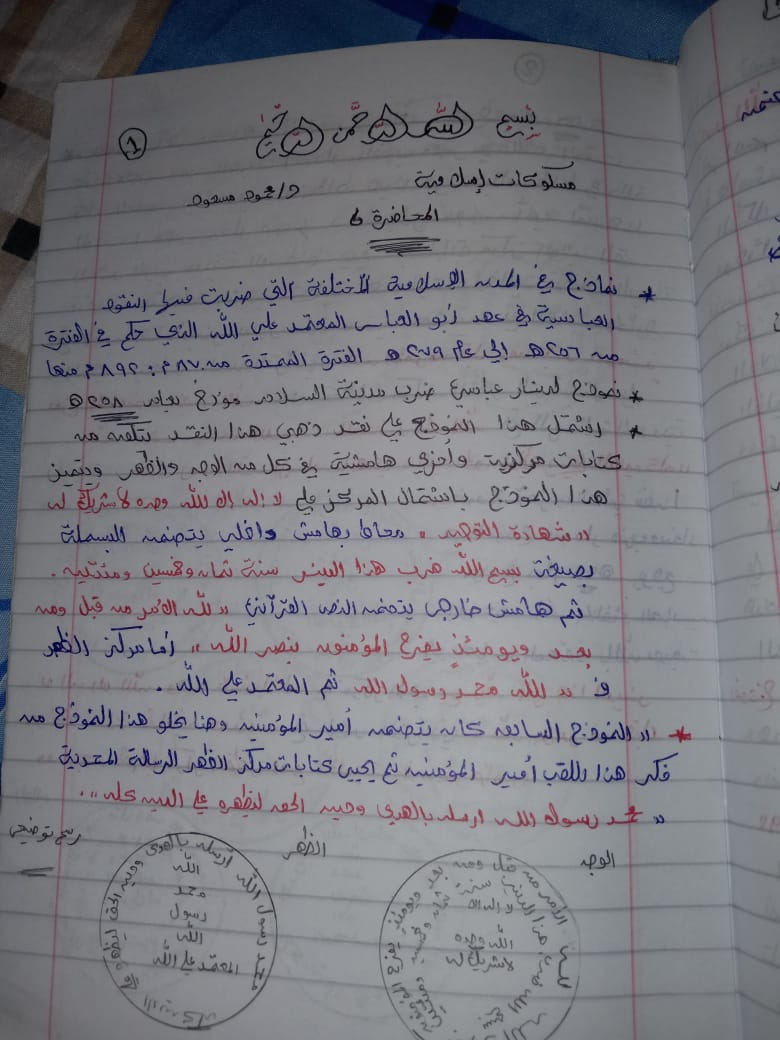 بسم الله الرحمن الرحيم
1
مسكوكات إسلامية
د/ محمود مسعود
المحاضرة 6
* نماذج في المدن الإسلامية المختلفة التي ضربت فيها النقود
العباسية في عهد أبو العباس المعتمد علي الله الذي حكم في الفترة
من ٢٥٦ هـ إلي عام ٢٧٩ هـ الفترة الممتدة من ٨٧٠م : ٨٩٢م منها
* نموذج لدينار عباسي ضرب مدينة السلام مؤرخ بعام ٢٥٨ هـ
* اشتمل هذا النموذج علي نقد ذهبي هذا النقد تتكون من
كتابات مركزية وأخري هامشية في كل من الوجه والظهر ويتميز
هذا النموذج باشتمال المركز علي لا إله إلا الله وحده لا شريك له
" شهادة التوحيد " محاط بهامش داخلي يتضمن البسملة
بصيغة بسم الله ضرب هذا الدينر سنة ثمان وخمسين ومئتين .
ثم هامش خارجي يتضمن النص القرآني " لله الأمر من قبل ومن
بعد ويومئذٍ يفرح المؤمنون بنصر الله " أما مركز الظهر
فـ " لله محمد رسول الله ثم المعتمد علي الله .
* " النموذج السابق كان يتضمن أمير المؤمنين وهنا يخلو هذا النموذج من
فكر هذا اللقب أمير المؤمنين ثم يحيط كتابات مركز الظهر الرسالة المحمدية
" محمد رسول الله ارسله بالهدي ودين الحق ليظهره علي الدين كله " .
الوجه
الظهر
رسم توضيحي
لا اله الا
الله وحده
لا شريك له
بسم الله ضرب هذا الدينر سنة ثمان وخمسين ومئتين
لله الأمر من قبل ومن بعد ويومئذ يفرح المؤمنون
الله
لله
محمد
رسول
الله
المعتمد علي الله
محمد رسول الله أرسله بالهدى ودين الحق ليظهره علي الدين كله